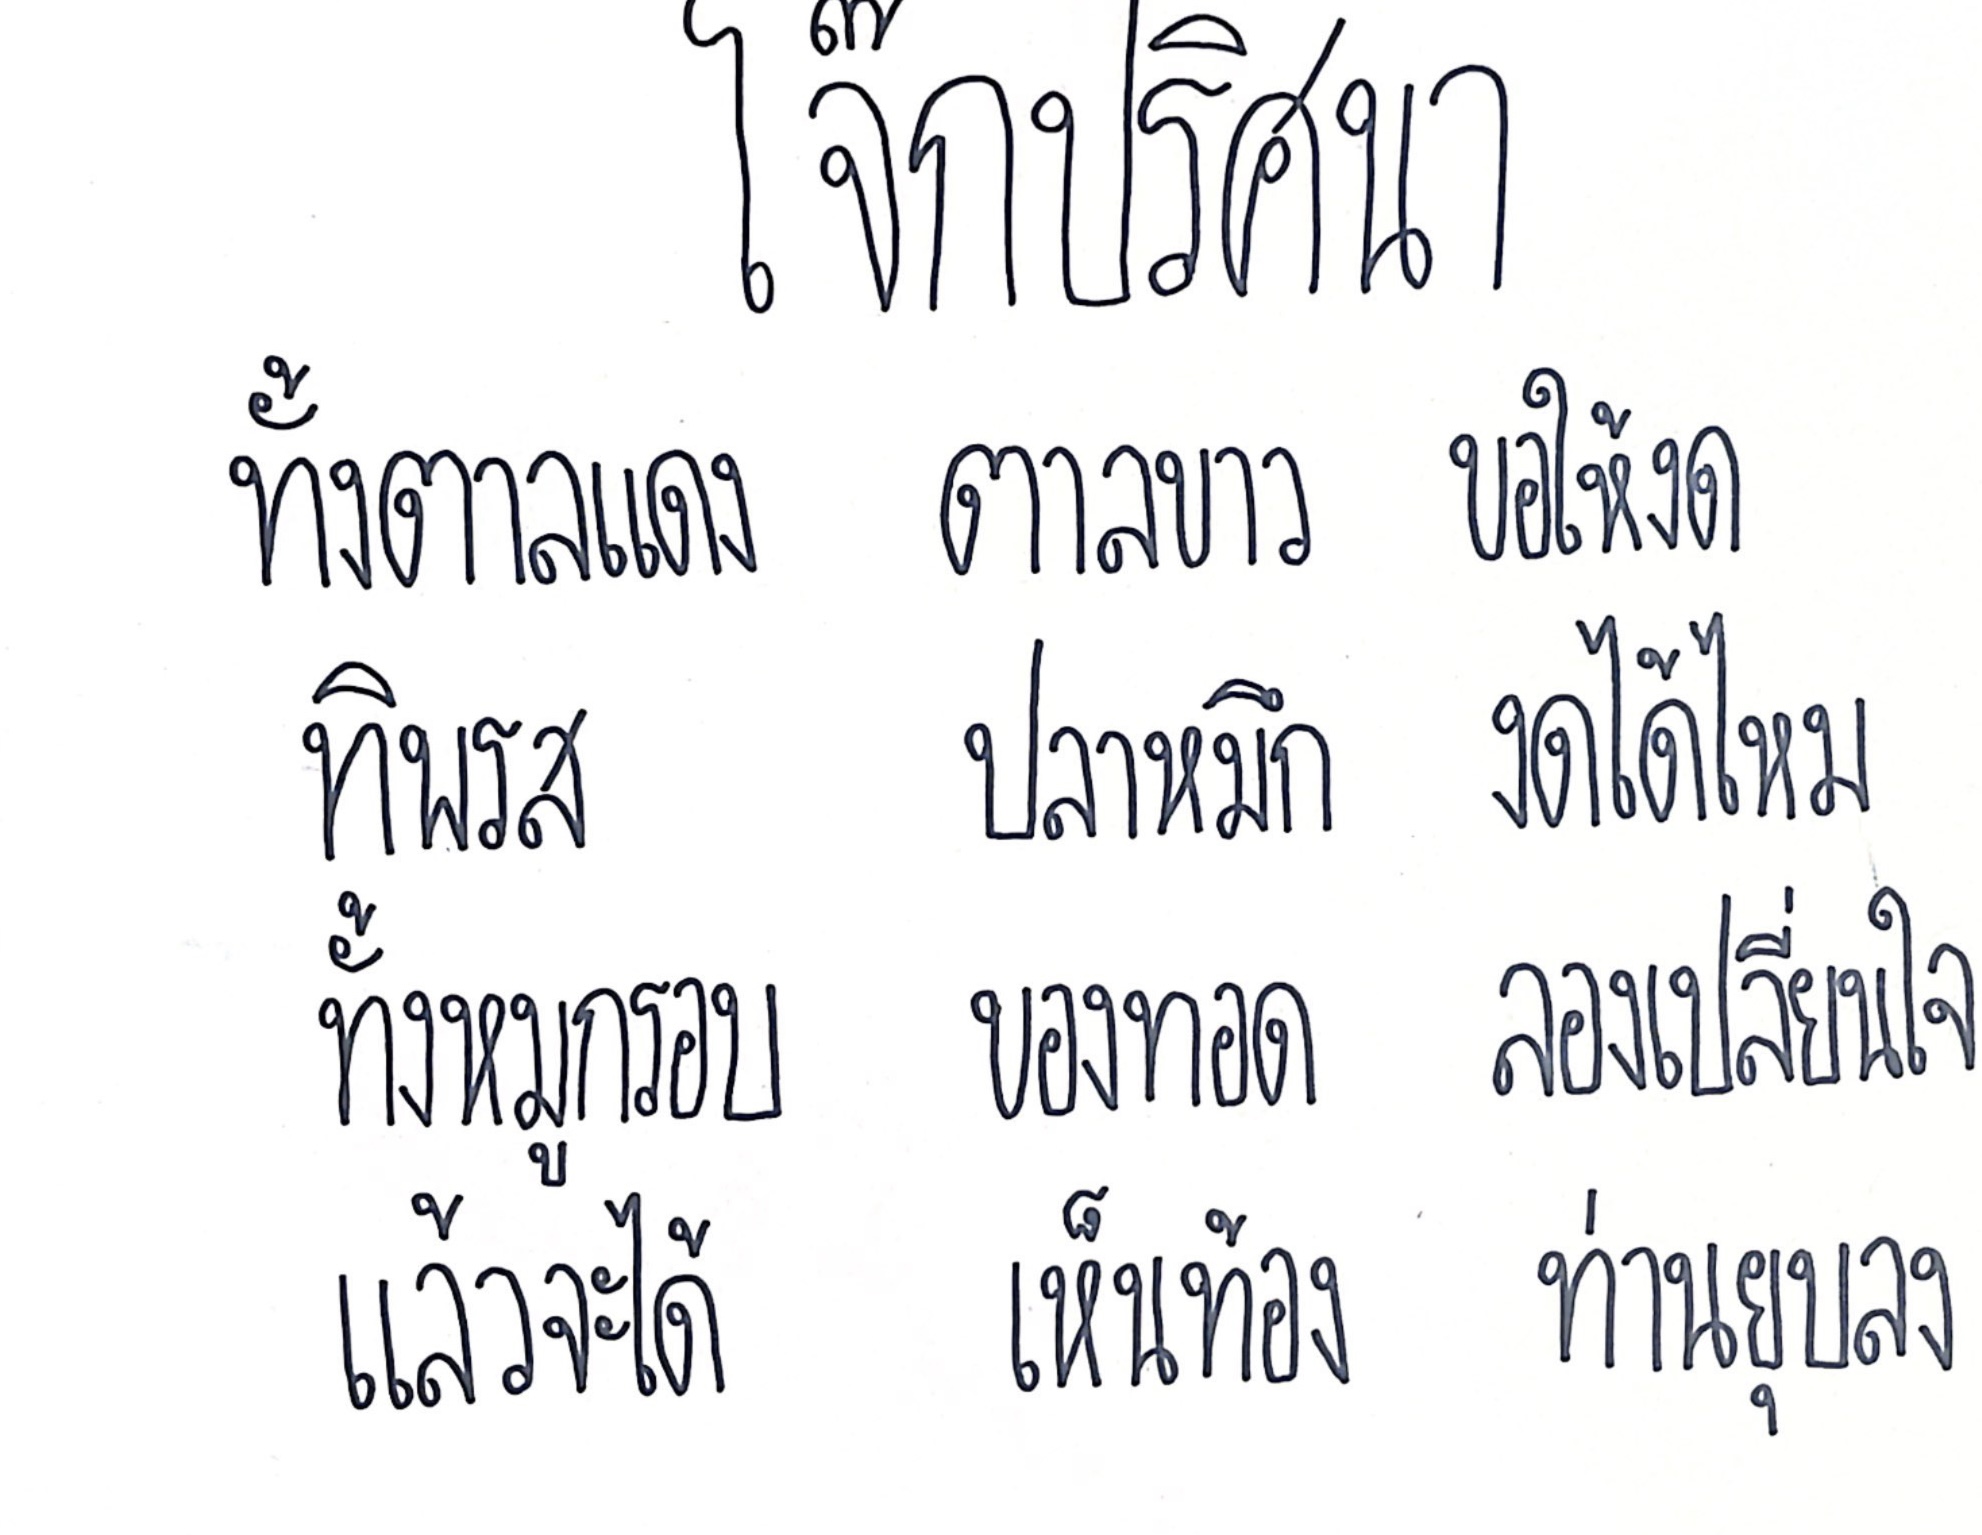 โจ๊กปริศนา
ทั้งตาลแดง ตาลขาว ขอให้งด
ทิพรส ปลาหมึก งดได้ไหม
ทั้งหมูกรอบ ของทอด ลองเปลี่ยนใจ
แล้วจะได้ เห็นท้อง ท่านยุบลง